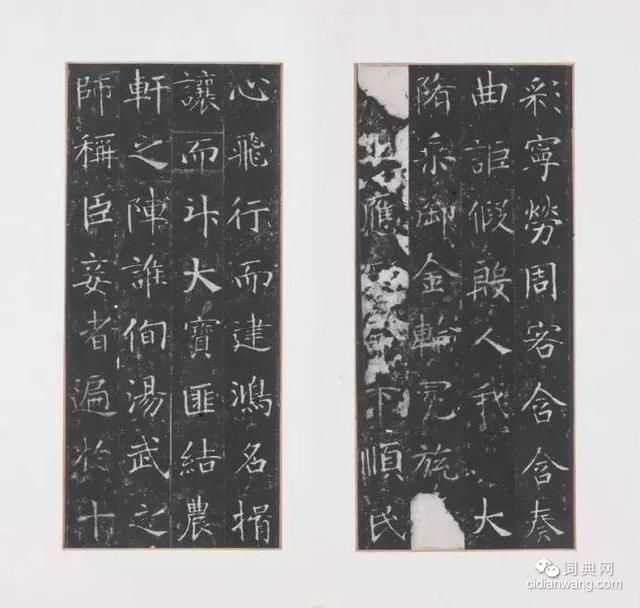 彩寧勞周客含含奏
曲詎假殷人我大
隋乘御金輪冕旒
上應下順民
心飛行而建鴻名揖
讓而升大寶匪結農
軒之陣誰徇湯武之
師稱臣妾者遍於十
词典网
cidianwang.com